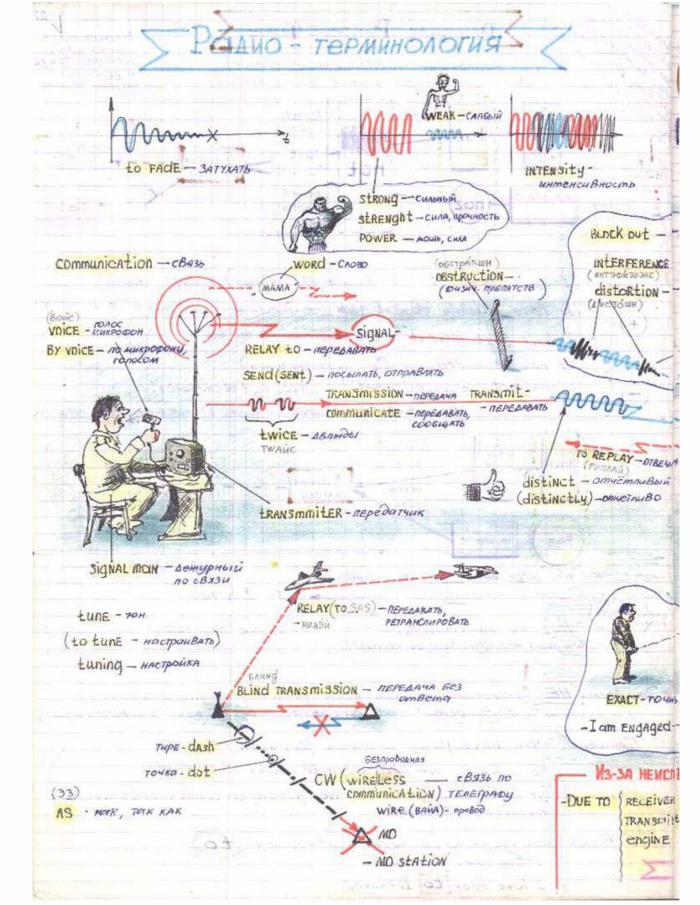 Радио - терминология
WEAK - слабый
t
to FADE - ЗАТУХАТЬ
INTENSITY -
интенсивность
STRONG - сильный
STRENGHT - сила, прочность
POWER - мощь, сила
BLOCK OUT -
COMMUNICATION - связь
WORD - слово
(обстракшн)
OBSTRUCTION -
(физич. препятств)
INTERFERENCE
(интэфиэрэнс)
distortion -
(дистошн)
МАМА
(войс)
VOICE - голос
микрофон
BY VOICE - по микрофону,
голосом
SIGNAL -
RELAY to - передавать
SEND (SENT) - посылать, отправлять
TRANSMISSION - передача
TRANSMIT -
- передавать
COMMUNICATE - передавать,
сообщать
twice - дважды
твайс
TO REPLAY - отвеча
(риплай)
distinct - отчётливый
(distinctly) - отчётливо
TRANSMMITER - передатчик
SIGNAL MAN - дежурный
по связи
tUNE - тон
(to tUNE - настраивать)
tuning - настройка
RELAY (TO SAS) - передавать,
ретранслировать
- рилэй
блинд
BLIND TRANSMISSION - передача без
ответа
тире - dash
точка - dot
безпроводная
CW (WIRELESS
COMMUNICATION) - связь по
телеграфу
WIRE (ВАЙА) - провод
(ЭЗ)
AS - как, так как
MD
- MD STATION
EXACT - точн
- I am ENGAGED -
Из-за неисп
- DUE TO
RECEIVER
TRANSMIT
ENGINE